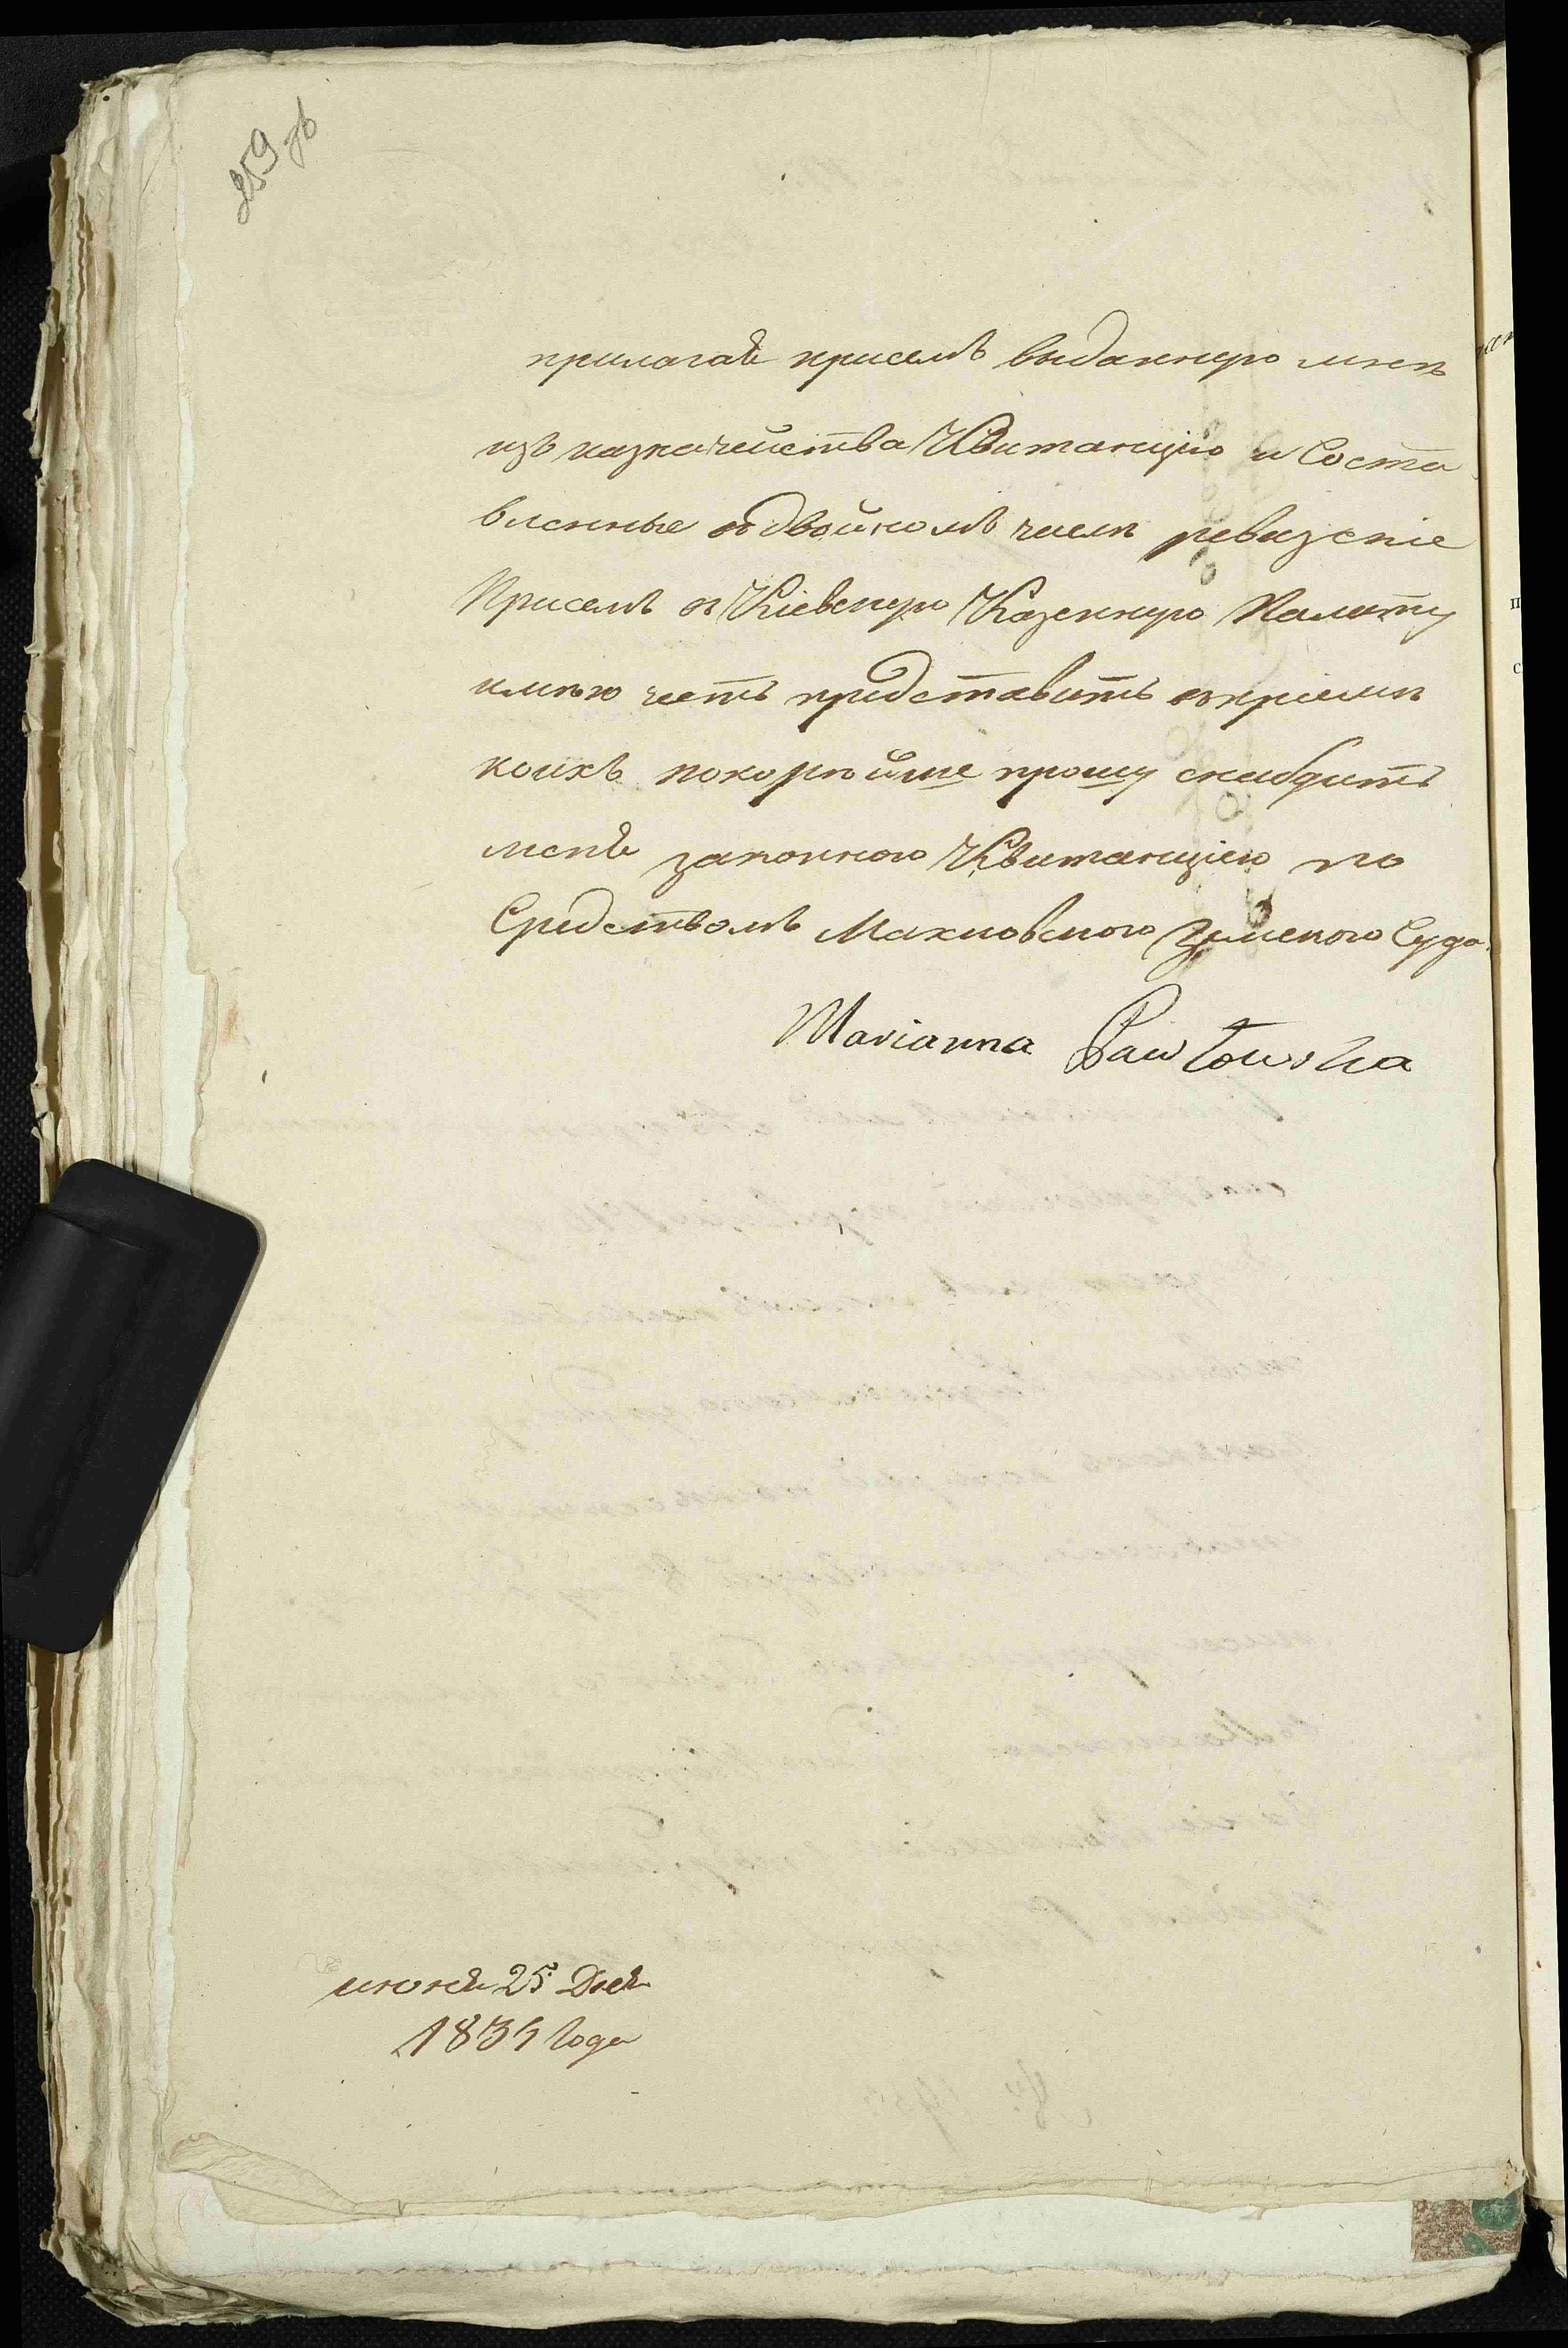 259 об
прилагая присемъ выданную мнѣ
изъ казначейства Квитанцію и Соста
вленные въ двойномъ числѣ ревизскіе
Присемъ въ Кіевскую Казенную Палату
имѣю честь представить въ пріемѣ
коихъ покорнѣйше прошу снабдить
меня законною Квитанціею по
Средствомъ Махновского Земского Суда.
Marianna Pawłowska
июня 25 Дня
1834 Года